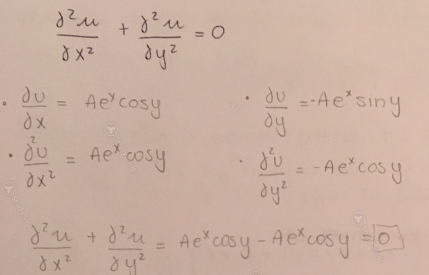 ∂²u/∂x² + ∂²u/∂y² = 0
· ∂u/∂x = Aeˣcosy · ∂u/∂y = -Aeˣsiny
· ∂²u/∂x² = Aeˣcosy · ∂²u/∂y² = -Aeˣcosy
∂²u/∂x² + ∂²u/∂y² = Aeˣcosy - Aeˣcosy = 0